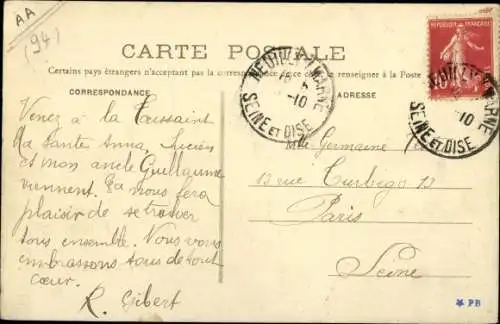 AA
(94)
CARTE POSTALE
Certains pays étrangers n'acceptant pas la correspondance (se renseigner à la Poste
CORRESPONDANCE
ADRESSE
NEUILLY MARNE
10
SEINE ET OISE
NEUILLY MARNE
10
SEINE ET OISE
10
Venez à la Toussaint
la tante Anna, Lucien
et mon oncle Guillaume
viennent. Ça nous fera
plaisir de se trouver
tous ensemble. Nous vous
embrassons tous de tout
cœur.
R. Gibert
Mlle Germaine
13 rue Turbigo 13
Paris
Seine
PB